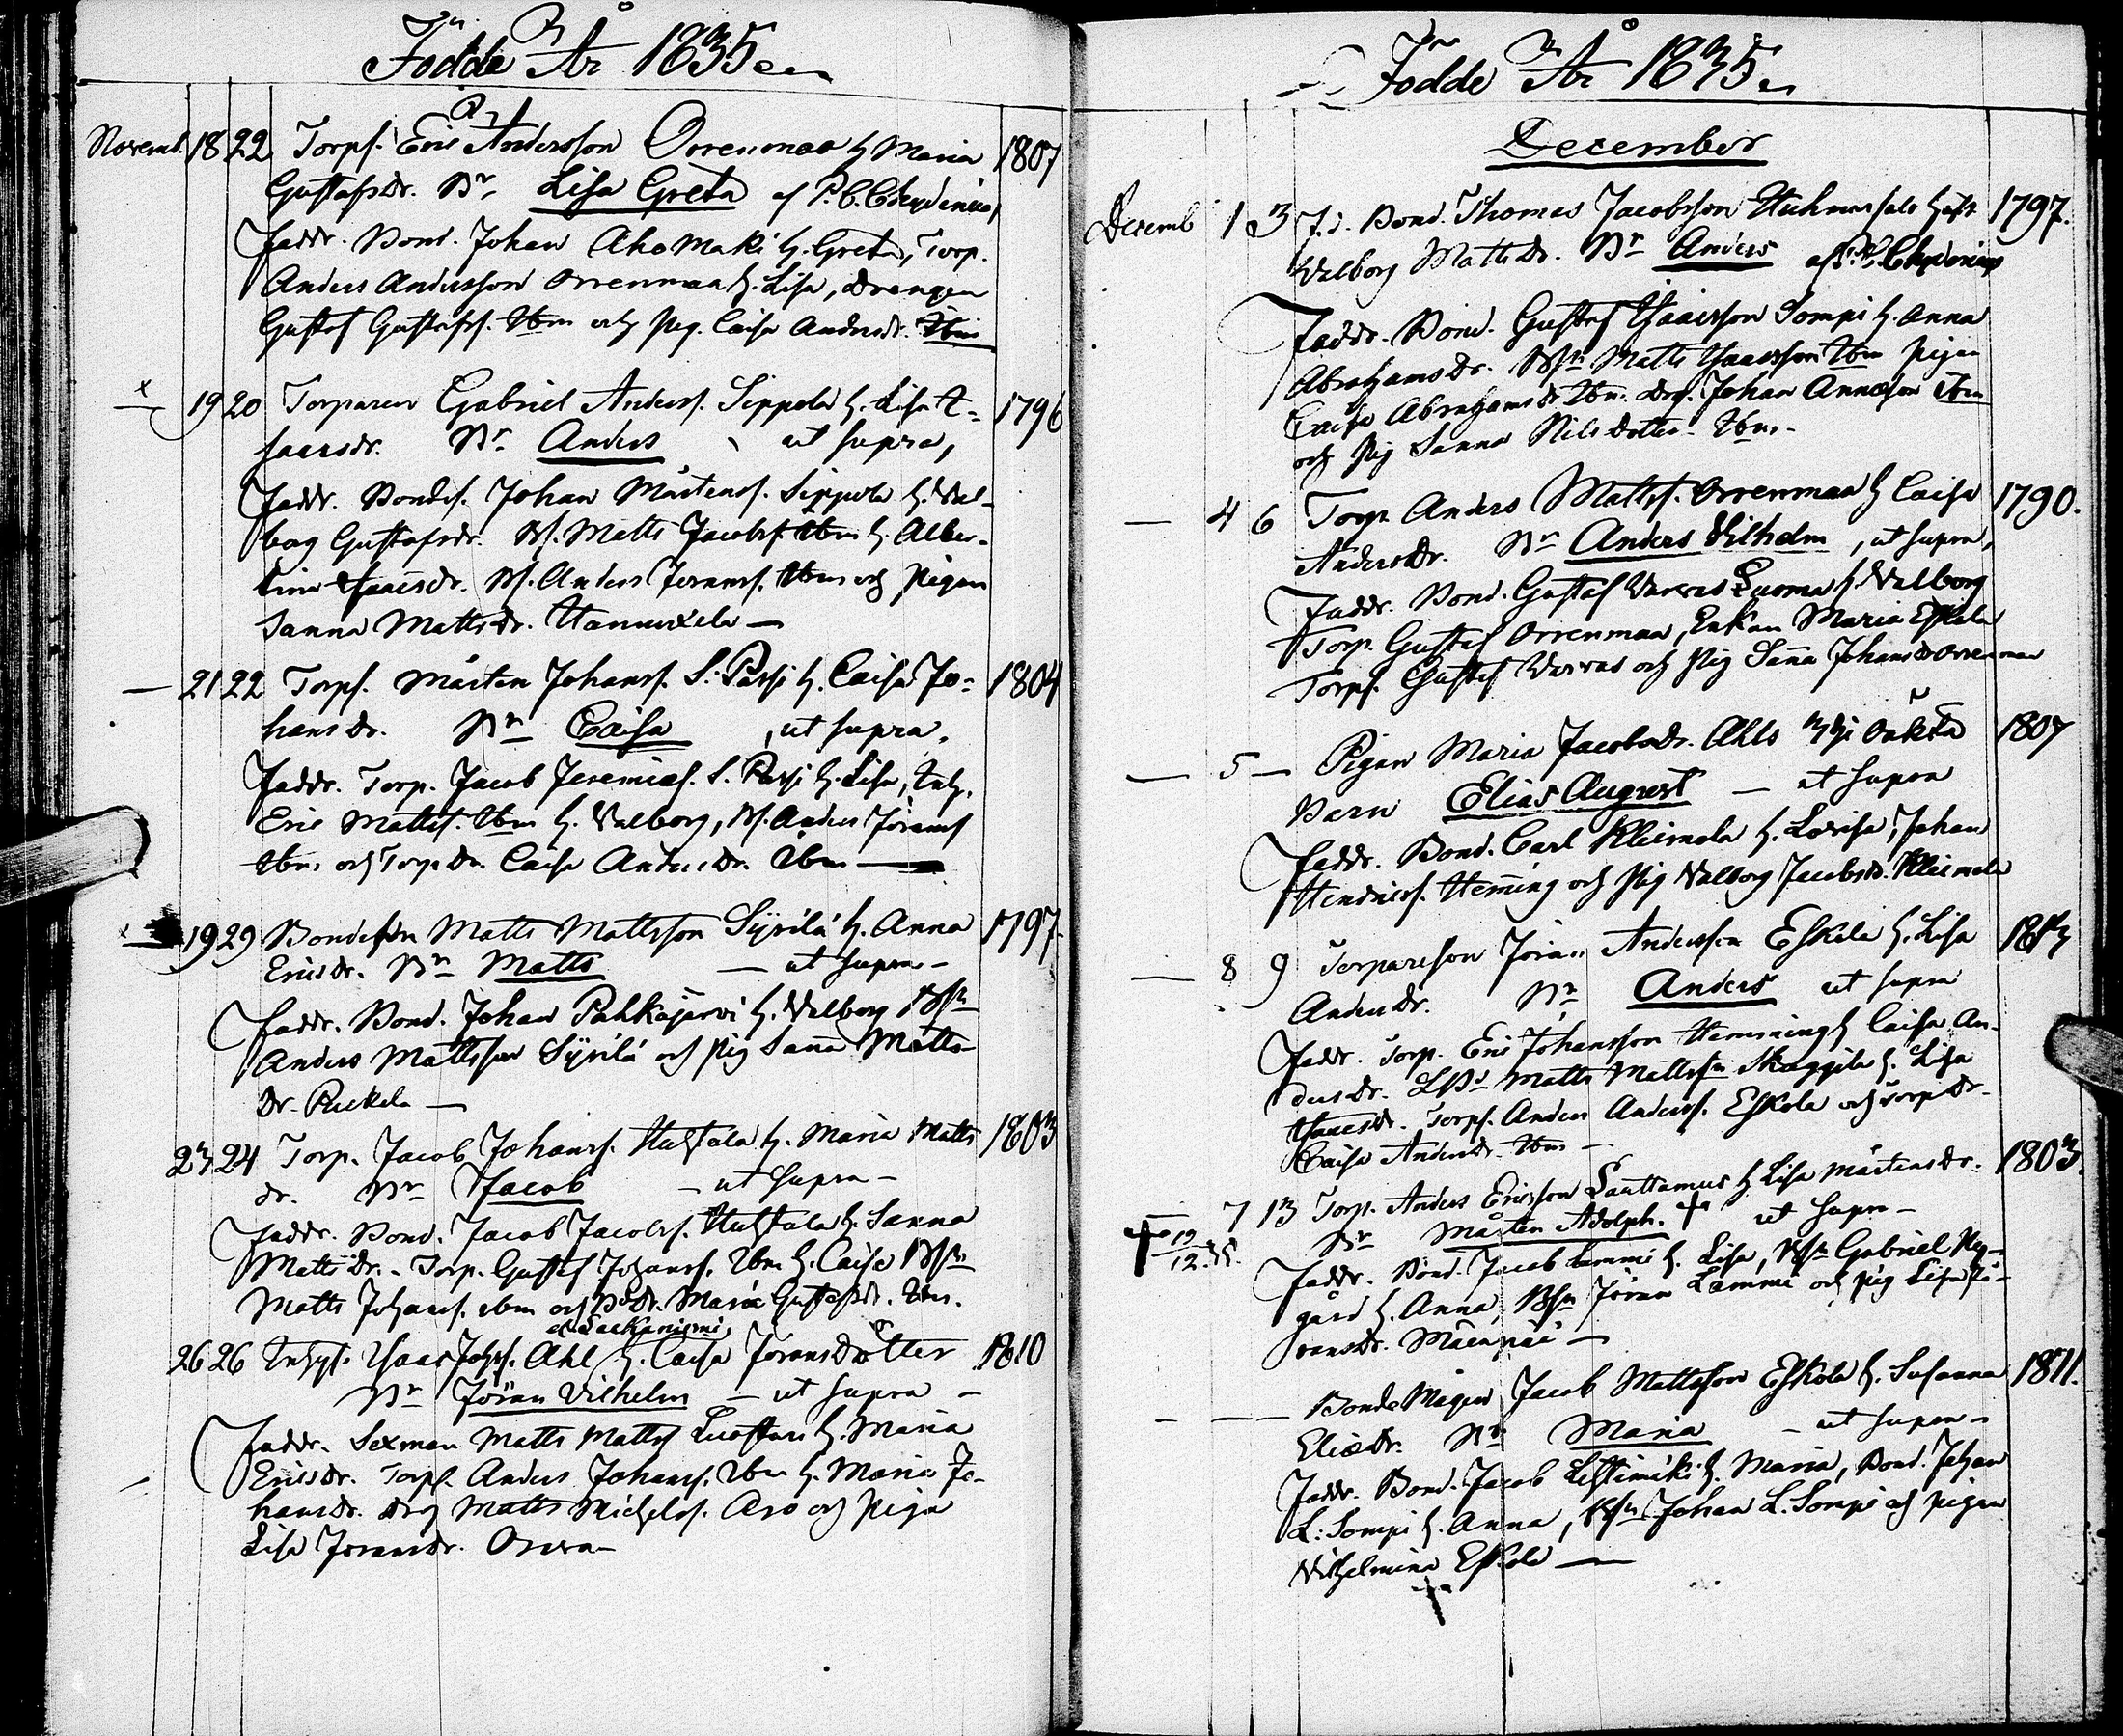 Födde År 1835
Novemb. 18 22 Torps. Eric Andersson Orrenmaa h. Maria 1807
Gustafsdr. Bn. Lisa Greta af P. C. Chydenius,
Faddr. Bond. Johan Ahomäki h. Greta, Torp.
Anders Andersson Orrenmaa h. Lisa, Drengen
Gustaf Gustafss. Ibm och pig. Caisa Andersdr. Ibm
19 20 Torparen Gabriel Anderss. Seppola h. Lisa I- 1796
saacsdr. Bn. Anders ut supra,
Faddr. Bondes. Johan Mårtenss. Seppola h. Val-
borg Gustafsdr. Bs. Matts Jacobss. Ibm h. Alber-
tina Isaacsdr. Bs. Anders Joranss. Ibm och pigan
Sanna Mattsdr.
21 22 Torps. Mårten Johanss. S. Passi h. Caisa Jo- 1804
hansdr. Bn Caisa, ut supra.
Faddr. Torp. Jacob Jeremiaes. S. Passi h. Lisa, Inh.
Eric Mattss. Ibm h. Valborg, Bs. Anders Jöranss
Ibm och Torpdr. Caisa Andersdr. Ibm
19 29 Bondeson Matts Mattsson Syrilä h. Anna 1797.
Ericsdr. Bn Matts — ut supra —
Faddr. Bond. Johan Pahkajärvi h. Valborg Bsn
Anders Mattsson Syrilä och pig Sanna Matts-
Dr.
23 24 Torp. Jacob Johanss. Huhtala h. Maria Matts 1803
dr. Bn Jacob — ut supra —
Faddr. Bond. Jacob Jacobss. Huhtala h. Sanna
Matts Dr. Torp. Gustaf Johanss. Ibm h. Caisa Bsn
Matts Johanss. Ibm och Bdr. Maria Gustafsdr. Ibm.
26 26 Inhys. Isaac Johss. Ahl h. Caisa Joransdotter 1810
Bn Jöran Vilhelm — ut supra —
Faddr. Sexman Matts Mattss h. Maria
Ericsdr. Torps. Anders Johanss. Ibm h. Maria Jo-
hansdr. Drg Matts Michelss. Aro och pigan
Lisa Joransdr.
Födde År 1835
December
Decemb 1 3 Bond. Thomas Jacobsson Huhmarsalo hust 1797.
Valborg Matts Dr. Bn Anders af P. C. Chydenius
Faddr. Bond. Gustaf Isaacsson Sompi h. Anna
Abrahams Dr. Bsn Matts Isaacsson Ibm pigan
Caisa Abrahamsdr Ibm. Drg. Johan Annason Ibm
och pig Sanna Nilsdotter Ibm.
4 6 Torp. Anders Mattss. Orrenmaa h Caisa 1790.
Andersdr. Bn Anders Vilhelm, ut supra,
Faddr. Bond. Gustaf Varras Luoma h Valborg
Torp. Gustaf Orrenmaa, Enkan Maria Eskola
Torps. Gustaf Varras och pig Sanna Johansdr Orrenmaa
5 — Pigan Maria Jacobsdr. Ahls oäkta 1807
Barn Elias August — ut supra
Faddr. Bond. Carl Kleimola h. Lovisa, Johan
Hendricss. Heming och pig Valborg Jacobsdr. Kleimola
8 9 Torpareson Jöran Andersson Eskola h. Lisa 1813
Andersdr. Bn Anders ut supra
Faddr. Torp. Eric Johansson Hemming h Caisa An-
dersdr. Matts Mattsson h. Lisa
Isaacsdr. Torps. Anders Anderss. Eskola och Torpdr.
Caisa Andersdr. Ibm —
7 13 Torp. Anders Ericsson Lauttamus h Lisa Mårtensdr. 1803.
12/12. 35. Bn Mårten Adolph. ut supra —
Faddr. Bond. Jacob Lammi h. Lisa, Bsn Gabriel Ny-
gård h. Anna, Bsn Jöran Lammi och pig Lisa Jö-
ransdr. Mäenpää —
Bonde Mågen Jacob Mattsson Eskola h. Susanna 1811.
Eliædr. Bn Maria — ut supra —
Faddr. Bond. Jacob Lehtimäki h. Maria, Bond. Johan
L: Sompi h. Anna, Bsn Johan L. Sompi och pigan
Vilhelmina Eskola —